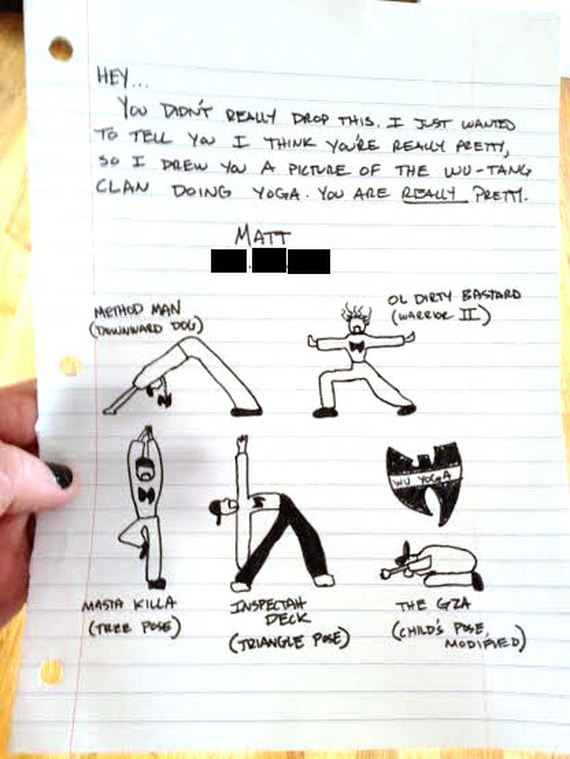 HEY...
YOU DIDN'T REALLY DROP THIS. I JUST WANTED
TO TELL YOU I THINK YOU'RE REALLY PRETTY,
SO I DREW YOU A PICTURE OF THE WU-TANG
CLAN DOING YOGA. YOU ARE REALLY PRETTY.
MATT
METHOD MAN
(DOWNWARD DOG)
OL DIRTY BASTARD
(WARRIOR II)
WU YOGA
MASTA KILLA
(TREE POSE)
INSPECTAH
DECK
(TRIANGLE POSE)
THE GZA
(CHILD'S POSE,
MODIFIED)